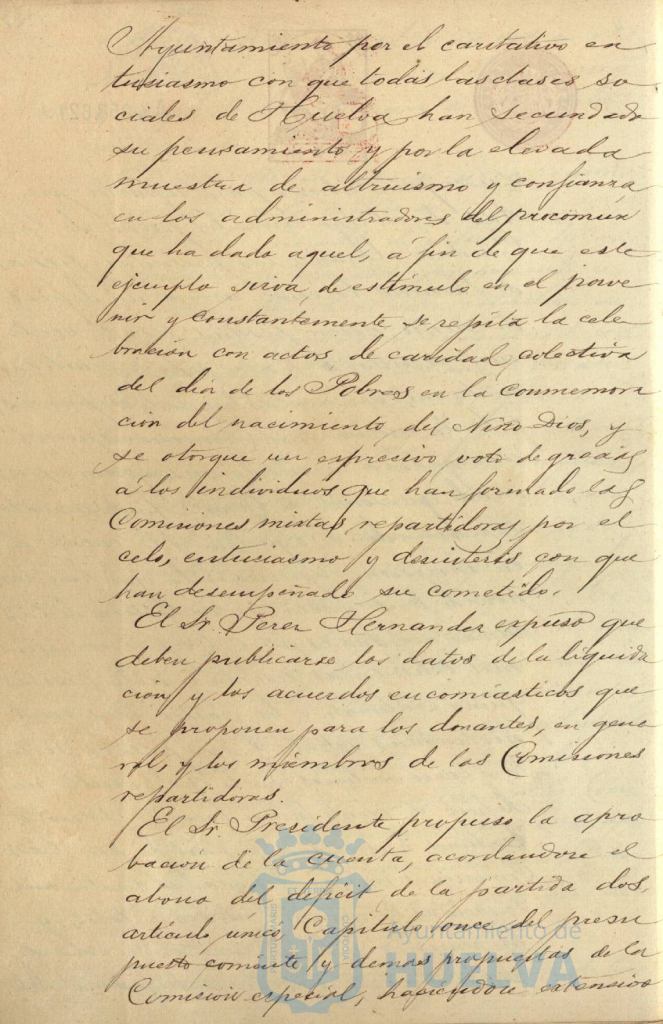 Ayuntamiento por el caritativo en
tusiasmo con que todas las clases so
ciales de Huelva han secundado
su pensamiento y por la elevada
muestra de altruismo y confianza
en los administradores del procomún
que ha dado aquel, á fin de que este
ejemplo sirva de estímulo en el porve
nir y constantemente se repita la cele
bración con actos de caridad colectiva
del dia de los Pobres en la conmemora
ción del nacimiento del Niño Dios, y
se otorque un espresivo voto de gracias
á los individuos que han formado las
Comisiones mixtas repartidoras por el
celo, entusiasmo y desinteres con que
han desempeñado su cometido.
El Sr. Perez Hernandez expuso que
deben publicarse los datos de la liquida
ción y los acuerdos encomiásticos que
se proponen para los donantes, en gene
ral, y los miembros de las Comisiones
repartidoras.
El Sr. Presidente propuso la apro
bación de la cuenta, acordandose el
abono del deficit de la partida dos,
artículo único, Capítulo once del presu
puesto corriente y demas propuestas de la
Comisión especial, haciendose extensivo
Ayuntamiento de
HUELVA